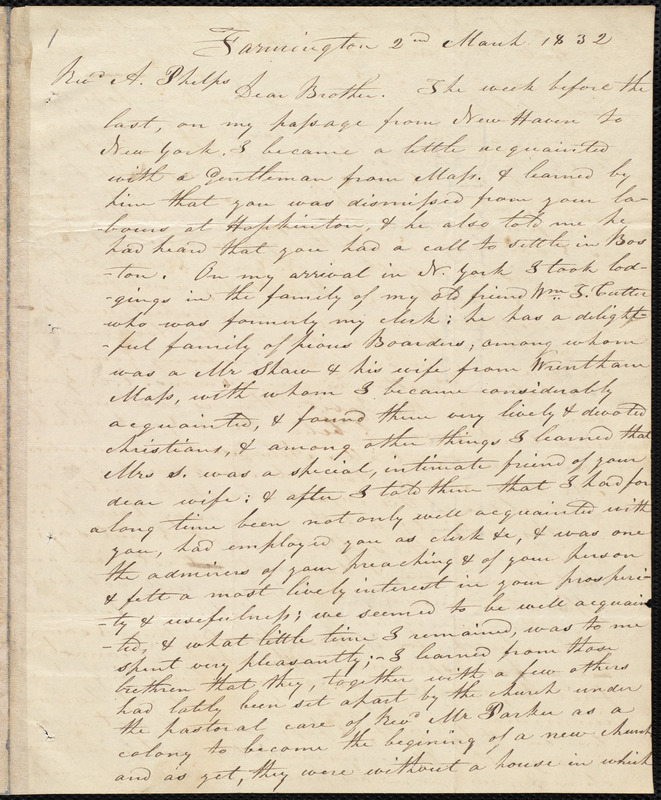 1
Farmington 2nd March 1832
Revd A. Phelps
Dear Brother. The week before the
last, on my passage from New Haven to
New York. I became a little acquainted
with a Gentleman from Mass. & learned by
him that you was dismissed from your la-
-bours at Hopkinton, & he also told me he
had heard that you had a call to settle in Bos
-ton. On my arrival in N. York I took lod-
-gings in the family of my old friend Wm. T. Cutter
who was formerly my clerk: he has a delight-
-ful family of pious Boarders; among whom
was a Mr Shaw & his wife from Wrentham
Mass, with whom I became considerably
acquainted, & found them very lively & devoted
christians, & among other things I learned that
Mrs S. was a special, intimate friend of your
dear wife: & after I told them that I had for
a long time been not only well acquainted with
you, had employed you as clerk &c, & was one
the admirers of your preaching & of your person
& felt a most lively interest in your prosperi-
-ty & usefulness; we seemed to be well acquain
-ted, & what little time I remained, was to me
spent very pleasantly;- I learned from those
brethren that they, together with a few others
had lately been set apart by the church under
the pastoral care of Revd Mr Parker as a
colony to become the begining of a new church
and as yet, they were without a house in which